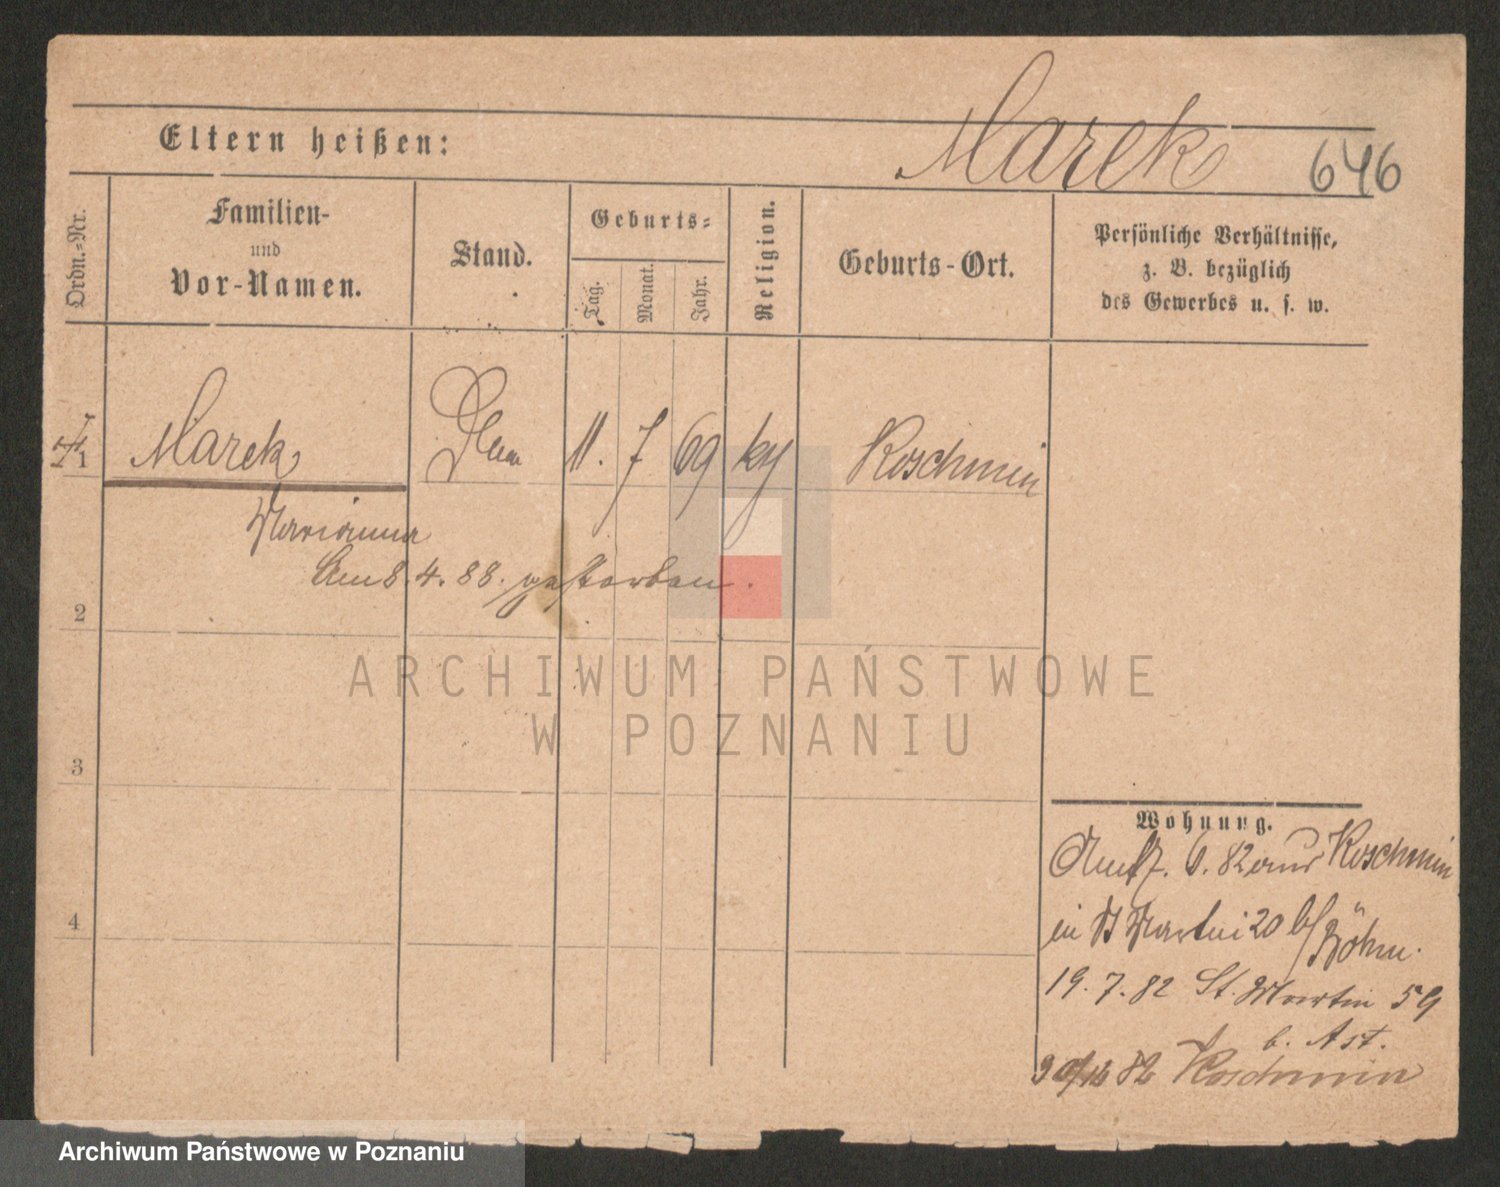 Marek 646
Eltern heißen:
Ordn.-Nr.
Familien-
und
Vor-Namen.
Stand.
Geburts-
Tag.
Monat.
Jahr.
Religion.
Geburts-Ort.
Persönliche Verhältnisse,
z. B. bezüglich
des Gewerbes u. s. w.
1 Marek 11. 7 69 Koschmin
Marianna
Am 8. 4. 88. gestorben.
2
3
4
ARCHIWUM PAŃSTWOWE
W POZNANIU
Wohnung.
6. 82 aus Koschmin
in St Martin 20 b/Böhm.
19. 7. 82 St. Martin 59
b. Ast.
82 Koschmin
Archiwum Państwowe w Poznaniu